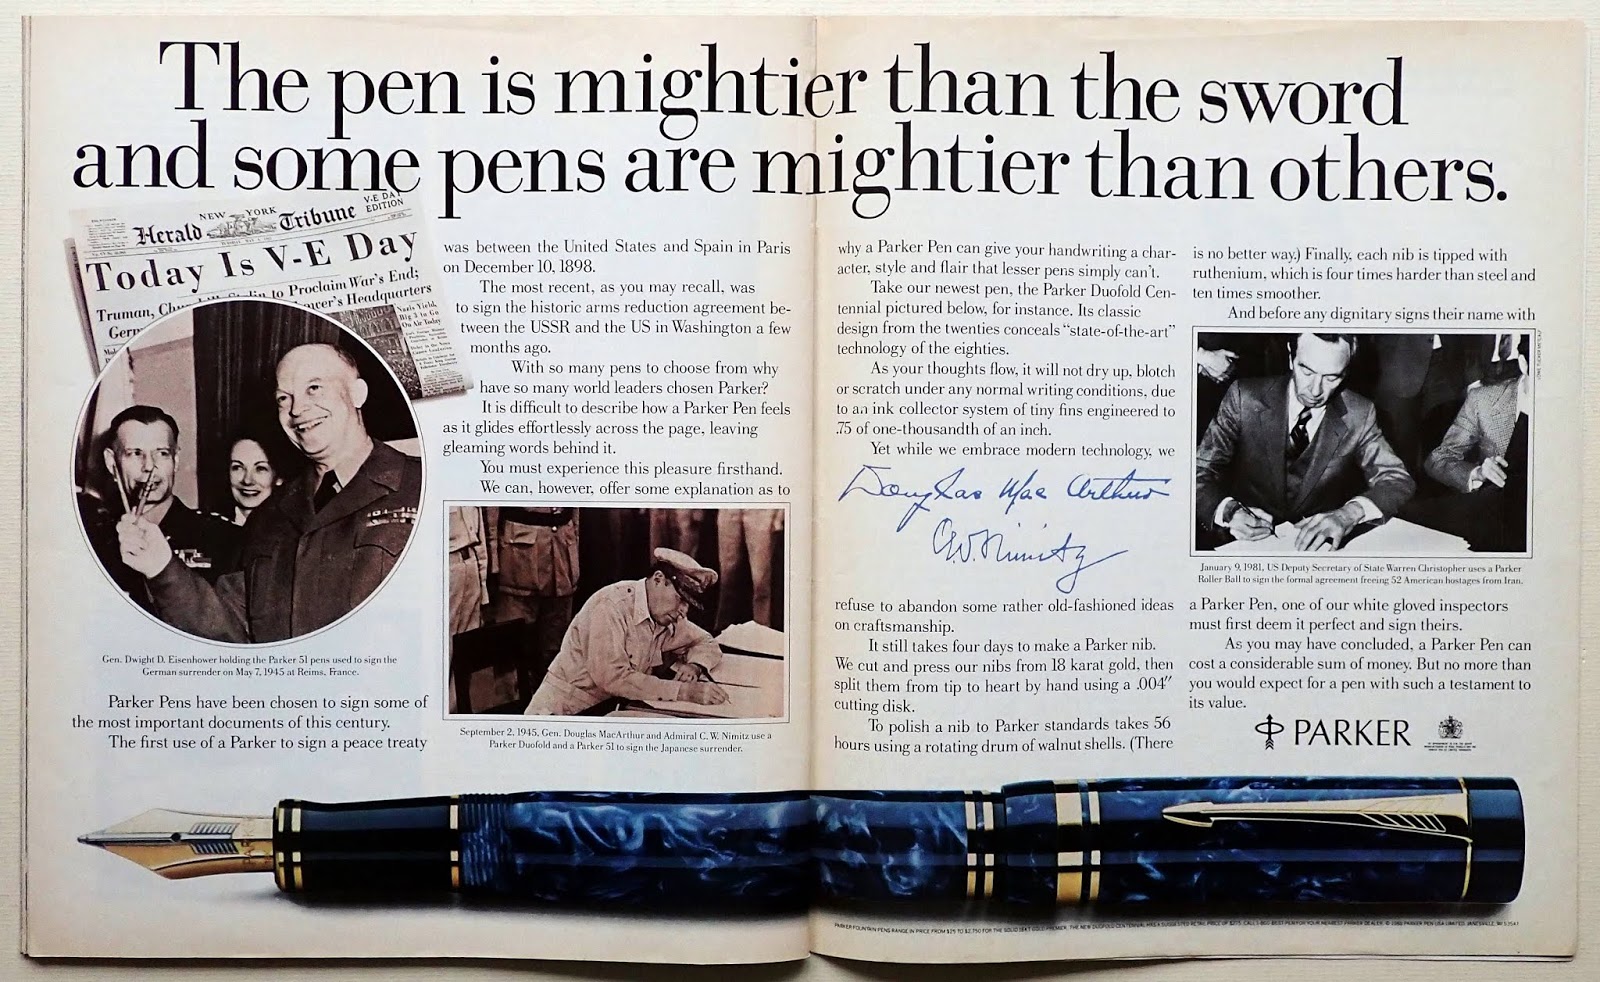 The pen is mightier than the sword
and some pens are mightier than others.
V-E DAY
EDITION
NEW YORK
Herald Tribune
Today Is V-E Day
Truman, Stalin to Proclaim War's End;
Headquarters
Nazis Yield,
Big 3 to Go
On Air Today
Gen. Dwight D. Eisenhower holding the Parker 51 pens used to sign the
German surrender on May 7, 1945 at Reims, France.
Parker Pens have been chosen to sign some of
the most important documents of this century.
The first use of a Parker to sign a peace treaty
was between the United States and Spain in Paris
on December 10, 1898.
The most recent, as you may recall, was
to sign the historic arms reduction agreement be-
tween the USSR and the US in Washington a few
months ago.
With so many pens to choose from why
have so many world leaders chosen Parker?
It is difficult to describe how a Parker Pen feels
as it glides effortlessly across the page, leaving
gleaming words behind it.
You must experience this pleasure firsthand.
We can, however, offer some explanation as to
September 2, 1945, Gen. Douglas MacArthur and Admiral C. W. Nimitz use a
Parker Duofold and a Parker 51 to sign the Japanese surrender.
why a Parker Pen can give your handwriting a char-
acter, style and flair that lesser pens simply can't.
Take our newest pen, the Parker Duofold Cen-
tennial pictured below, for instance. Its classic
design from the twenties conceals "state-of-the-art"
technology of the eighties.
As your thoughts flow, it will not dry up, blotch
or scratch under any normal writing conditions, due
to an ink collector system of tiny fins engineered to
.75 of one-thousandth of an inch.
Yet while we embrace modern technology, we
Douglas MacArthur
C.W. Nimitz
refuse to abandon some rather old-fashioned ideas
on craftsmanship.
It still takes four days to make a Parker nib.
We cut and press our nibs from 18 karat gold, then
split them from tip to heart by hand using a .004″
cutting disk.
To polish a nib to Parker standards takes 56
hours using a rotating drum of walnut shells. (There
is no better way.) Finally, each nib is tipped with
ruthenium, which is four times harder than steel and
ten times smoother.
And before any dignitary signs their name with
January 9, 1981, US Deputy Secretary of State Warren Christopher uses a Parker
Roller Ball to sign the formal agreement freeing 52 American hostages from Iran.
a Parker Pen, one of our white gloved inspectors
must first deem it perfect and sign theirs.
As you may have concluded, a Parker Pen can
cost a considerable sum of money. But no more than
you would expect for a pen with such a testament to
its value.
PARKER